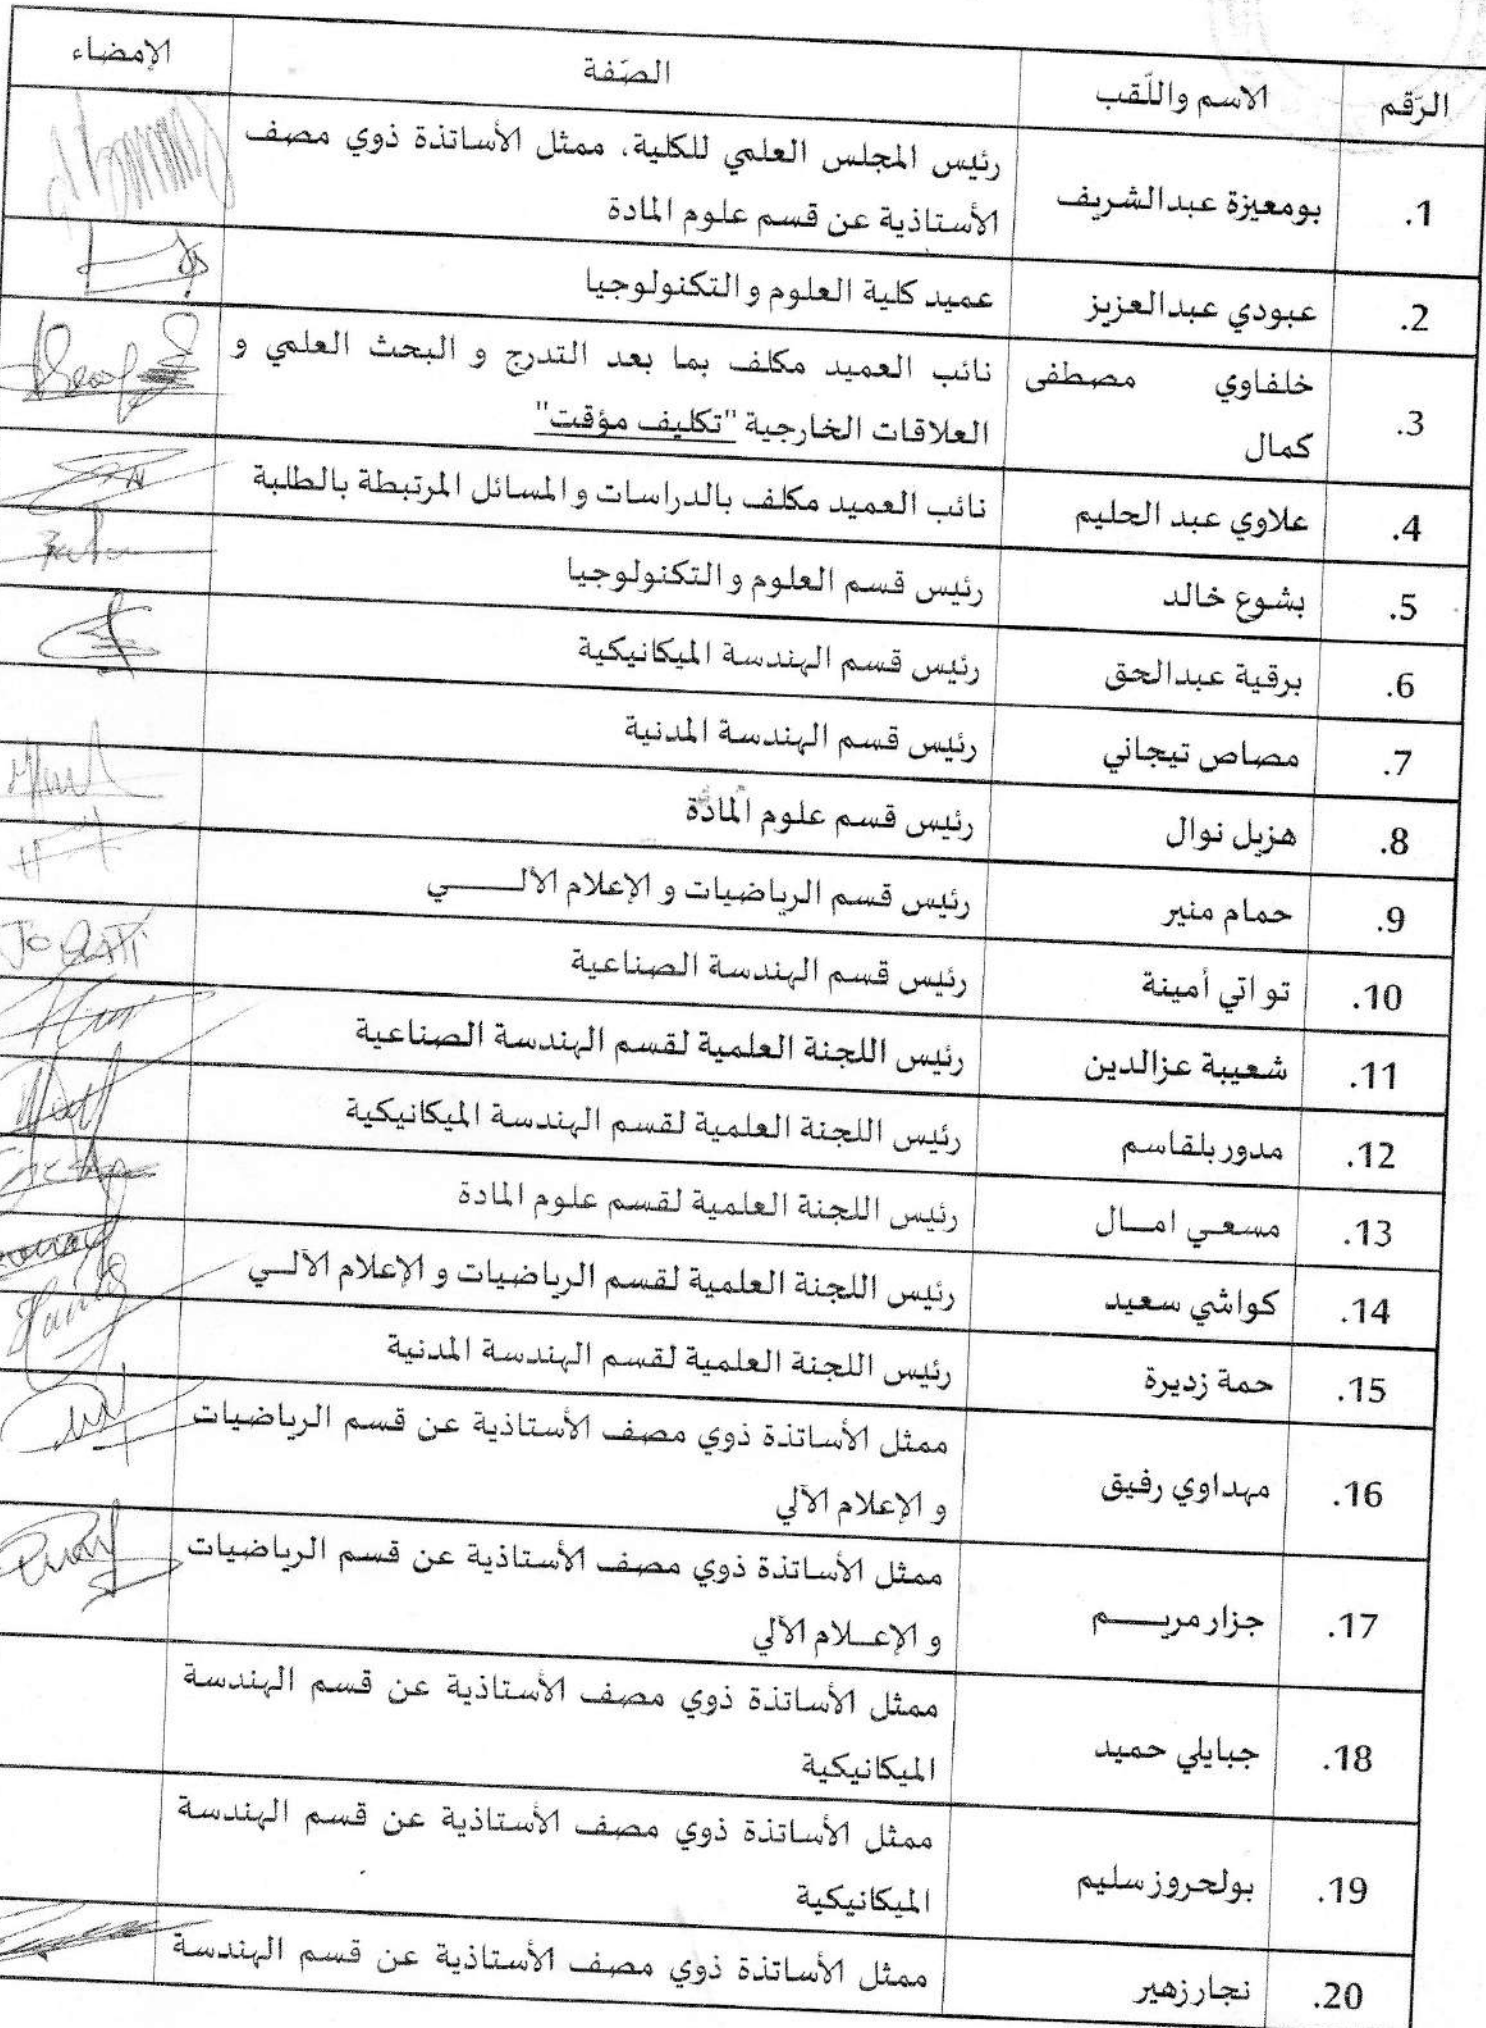 الرّقم الاسم واللّقب الصّفة الإمضاء
1. بومعيزة عبدالشريف رئيس المجلس العلمي للكلية، ممثل الأساتذة ذوي مصف
الأستاذية عن قسم علوم المادة
2. عبودي عبدالعزيز عميد كلية العلوم والتكنولوجيا
3. خلفاوي مصطفى نائب العميد مكلف بما بعد التدرج و البحث العلمي و
كمال العلاقات الخارجية "تكليف مؤقت"
4. علاوي عبد الحليم نائب العميد مكلف بالدراسات والمسائل المرتبطة بالطلبة
5. بشوع خالد رئيس قسم العلوم والتكنولوجيا
6. برقية عبدالحق رئيس قسم الهندسة الميكانيكية
7. مصاص تيجاني رئيس قسم الهندسة المدنية
8. هزيل نوال رئيس قسم علوم المادة
9. حمام منير رئيس قسم الرياضيات و الإعلام الآلـــــي
10. تواتي أمينة رئيس قسم الهندسة الصناعية
11. شعيبة عزالدين رئيس اللجنة العلمية لقسم الهندسة الصناعية
12. مدور بلقاسم رئيس اللجنة العلمية لقسم الهندسة الميكانيكية
13. مسعـي امـــال رئيس اللجنة العلمية لقسم علوم المادة
14. كواشي سعيد رئيس اللجنة العلمية لقسم الرياضيات و الإعلام الآلــي
15. حمة زديرة رئيس اللجنة العلمية لقسم الهندسة المدنية
16. مهداوي رفيق ممثل الأساتذة ذوي مصف الأستاذية عن قسم الرياضيات
و الإعلام الآلي
17. جزار مريــــم ممثل الأساتذة ذوي مصف الأستاذية عن قسم الرياضيات
و الإعــلام الآلي
18. جبايلي حميد ممثل الأساتذة ذوي مصف الأستاذية عن قسم الهندسة
الميكانيكية
19. بولحروز سليم ممثل الأساتذة ذوي مصف الأستاذية عن قسم الهندسة
الميكانيكية
20. نجار زهير ممثل الأساتذة ذوي مصف الأستاذية عن قسم الهندسة